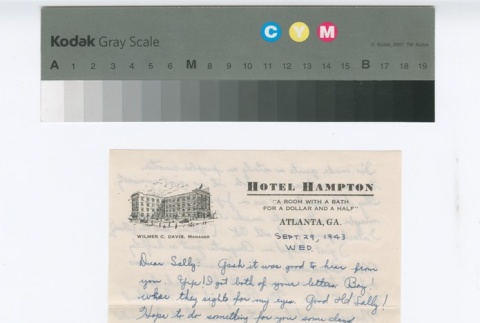 Kodak Gray Scale
C Y M
© Kodak, 2007 TM: Kodak
A 1 2 3 4 5 6 M 8 9 10 11 12 13 14 15 B 17 18 19
HOTEL HAMPTON
"A ROOM WITH A BATH
FOR A DOLLAR AND A HALF"
ATLANTA, GA.
WILMER C. DAVIS, MANAGER
SEPT. 29, 1943
WED.
Dear Sally: Gosh it was good to hear from
you. Yep! I got both of your letters. Boy!
were they sights for my eyes. Good Old Sally!
Hope to do something for you some day